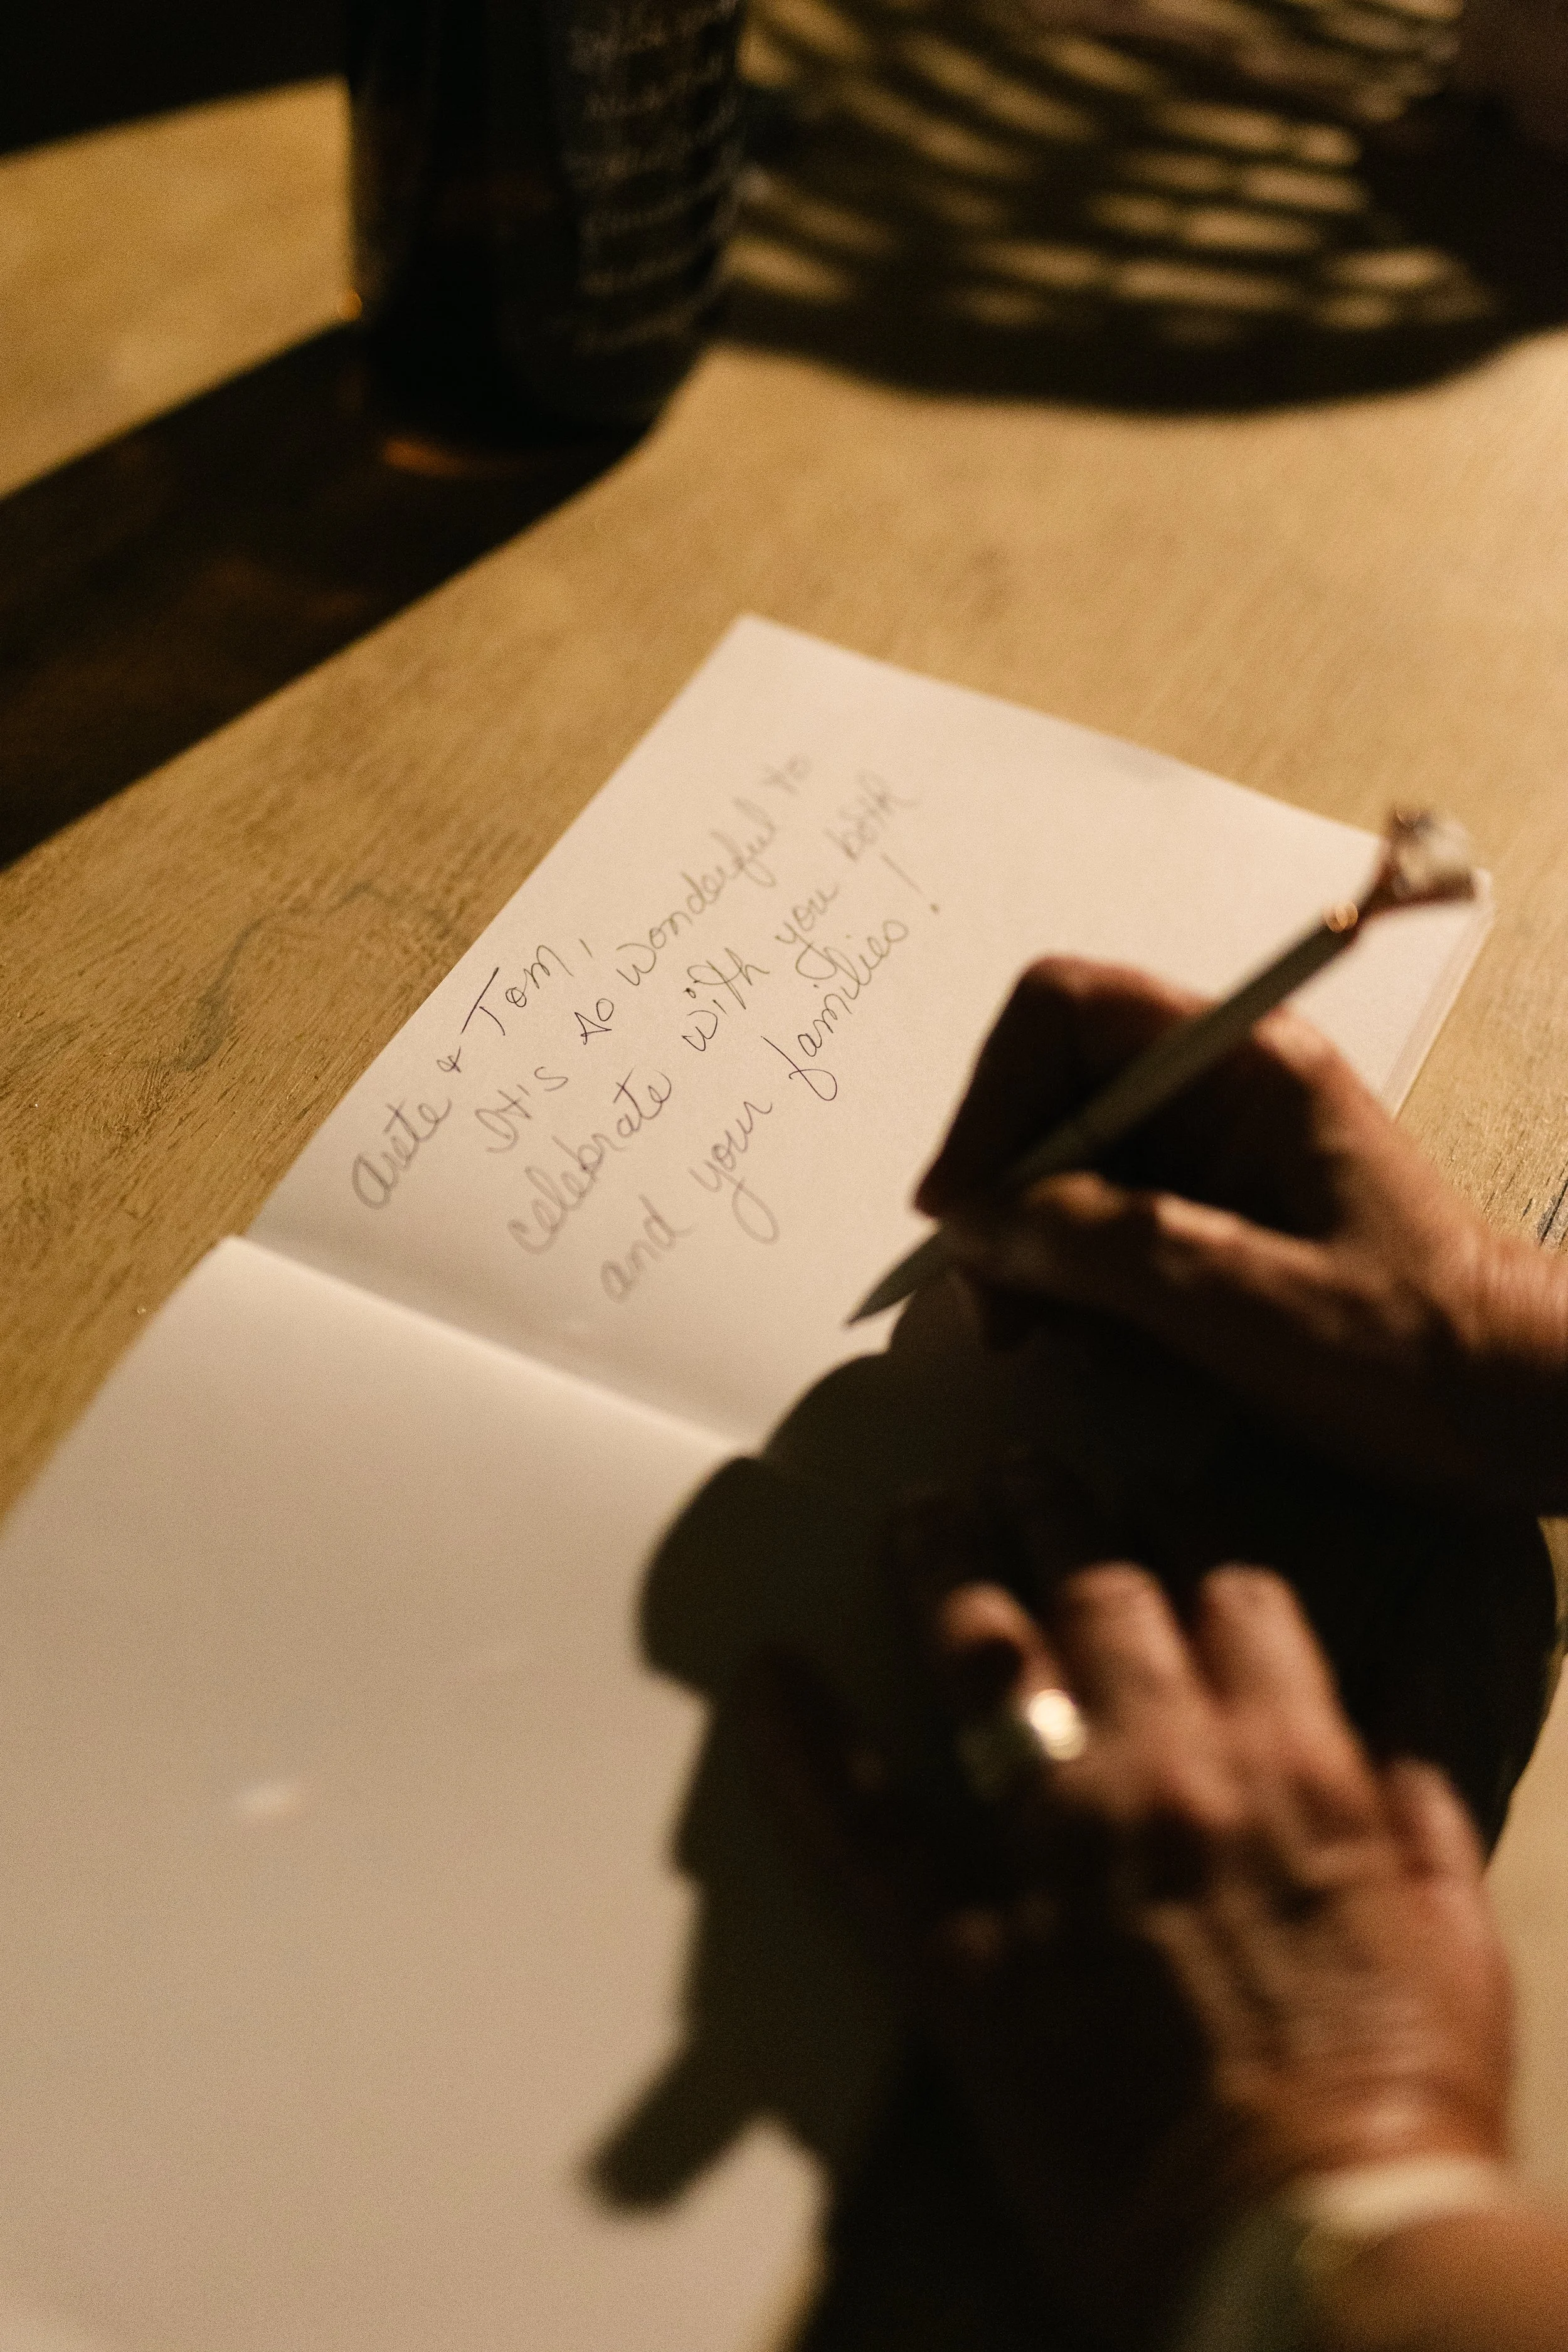 Arete & Tom,
It's so wonderful to
celebrate with you both
and your families!